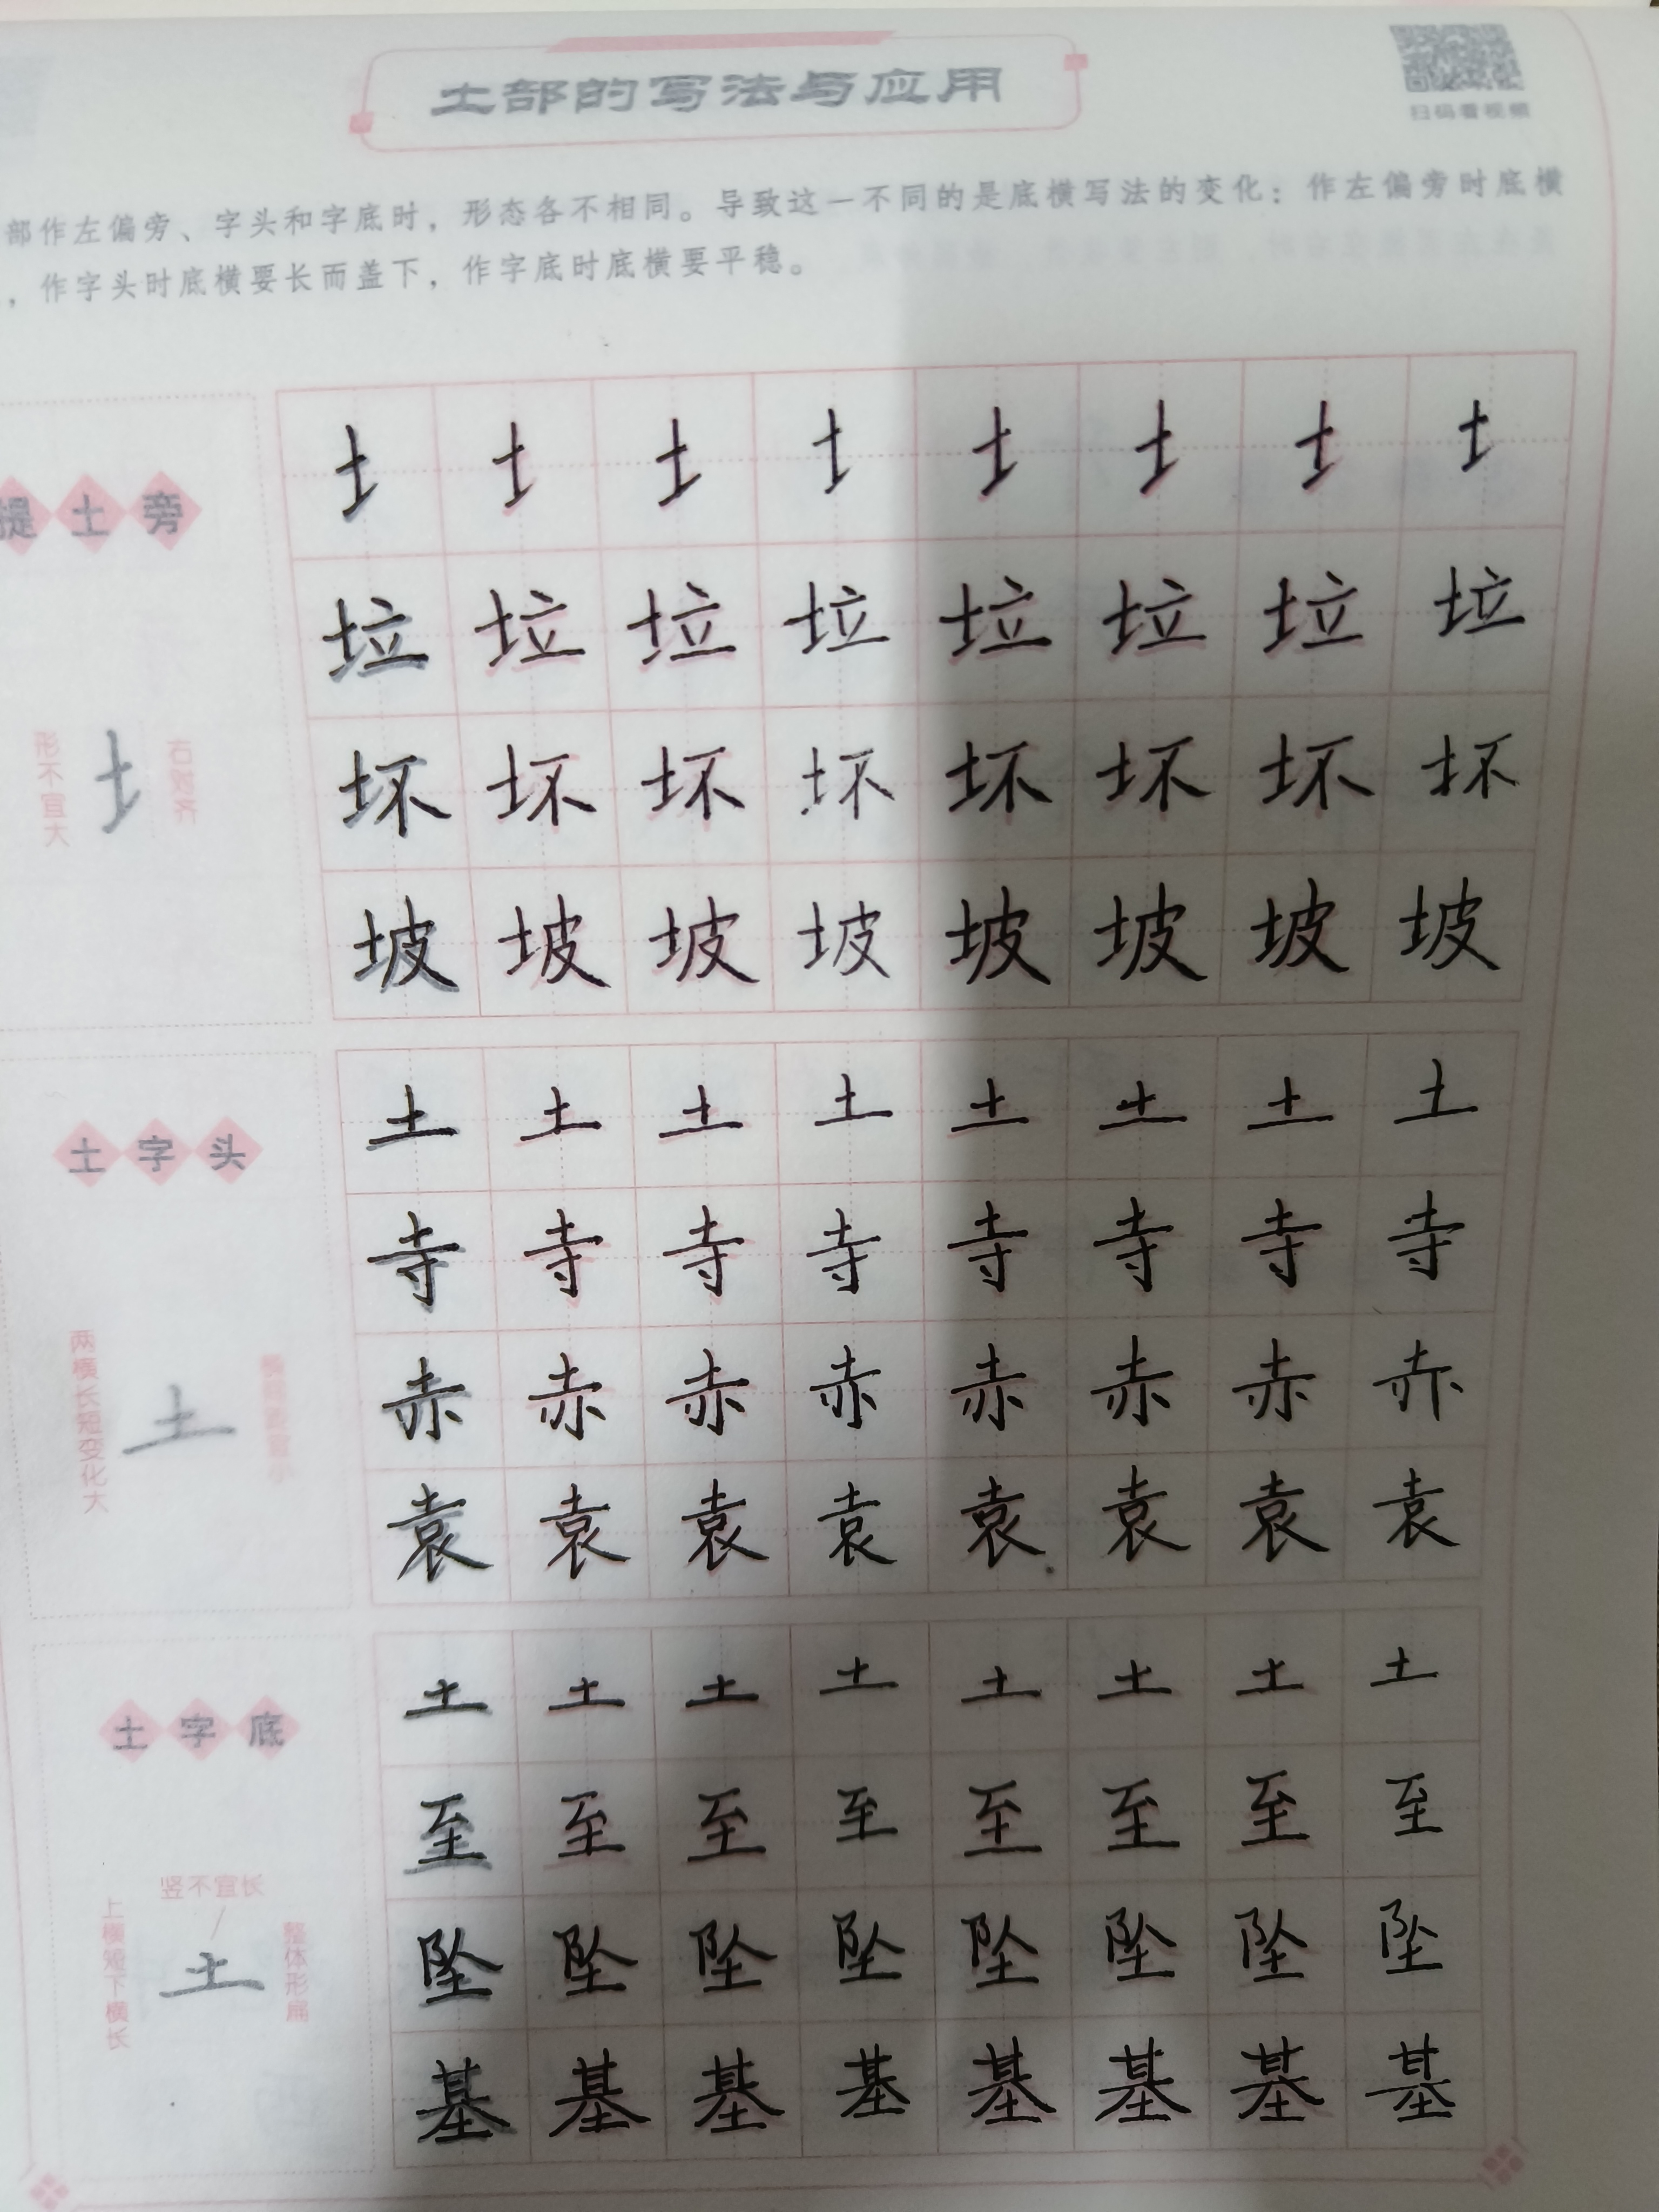 土部的写法与应用
扫码看视频
部作左偏旁、字头和字底时，形态各不相同。导致这一不同的是底横写法的变化：作左偏旁时底横
，作字头时底横要长而盖下，作字底时底横要平稳。
提土旁
形不宜大
右对齐
土 土 土 土 土 土 土 土
垃 垃 垃 垃 垃 垃 垃 垃
坏 坏 坏 坏 坏 坏 坏 坏
坡 坡 坡 坡 坡 坡 坡 坡
土字头
两横长短变化大
土
土 土 土 土 土 土 土 土
寺 寺 寺 寺 寺 寺 寺 寺
赤 赤 赤 赤 赤 赤 赤 赤
袁 袁 袁 袁 袁 袁 袁 袁
土字底
竖不宜长
上横短下横长
土
整体形扁
土 土 土 土 土 土 土 土
至 至 至 至 至 至 至 至
坠 坠 坠 坠 坠 坠 坠 坠
基 基 基 基 基 基 基 基